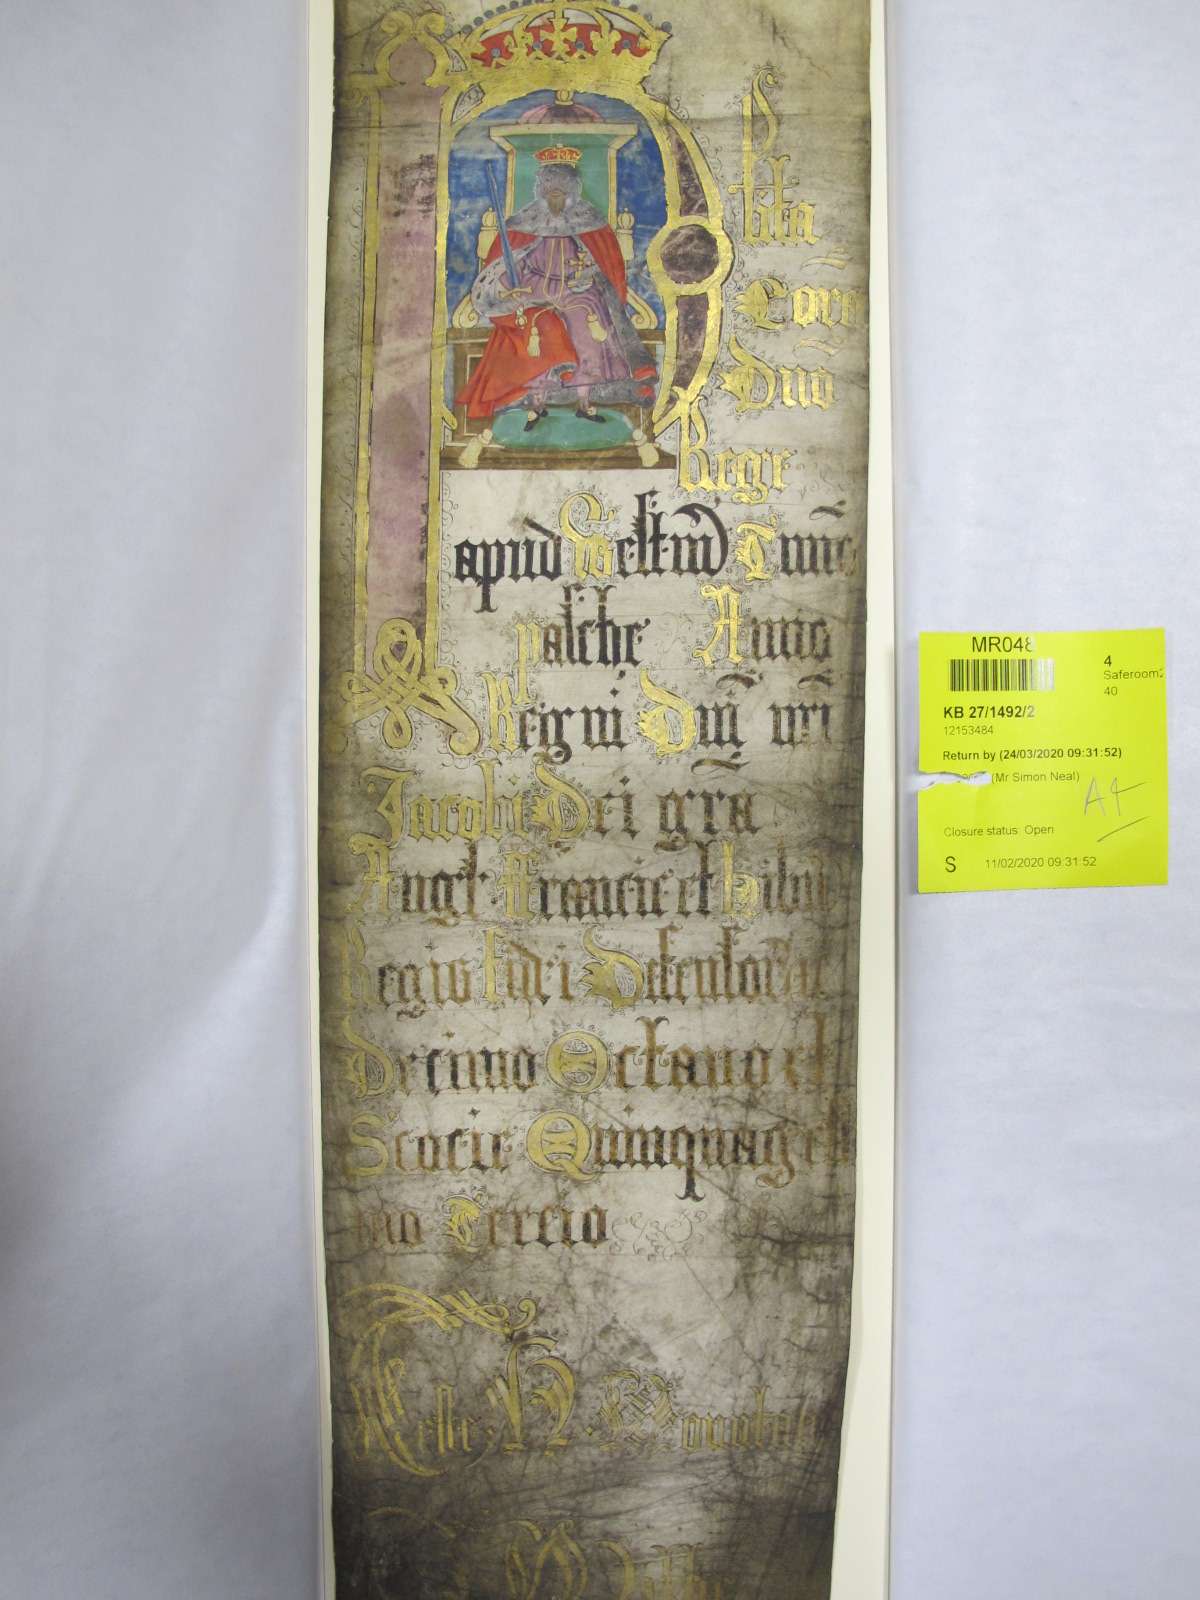 Plita
Cora
Dno
Rege
apud Westm̄ T̄mino
pasche Anno
Regni Dn̄i nr̄i
Jacobi Dei gra
Angl Francie et Hib
Regis fidei Defensor
Decimo Octauo et
Scocie Quinquagesi
mo Tercio
Teste H Mountag
MR048
4
Saferoom2
40
KB 27/1492/2
12153484
Return by (24/03/2020 09:31:52)
(Mr Simon Neal)
A4
Closure status: Open
S 11/02/2020 09:31:52